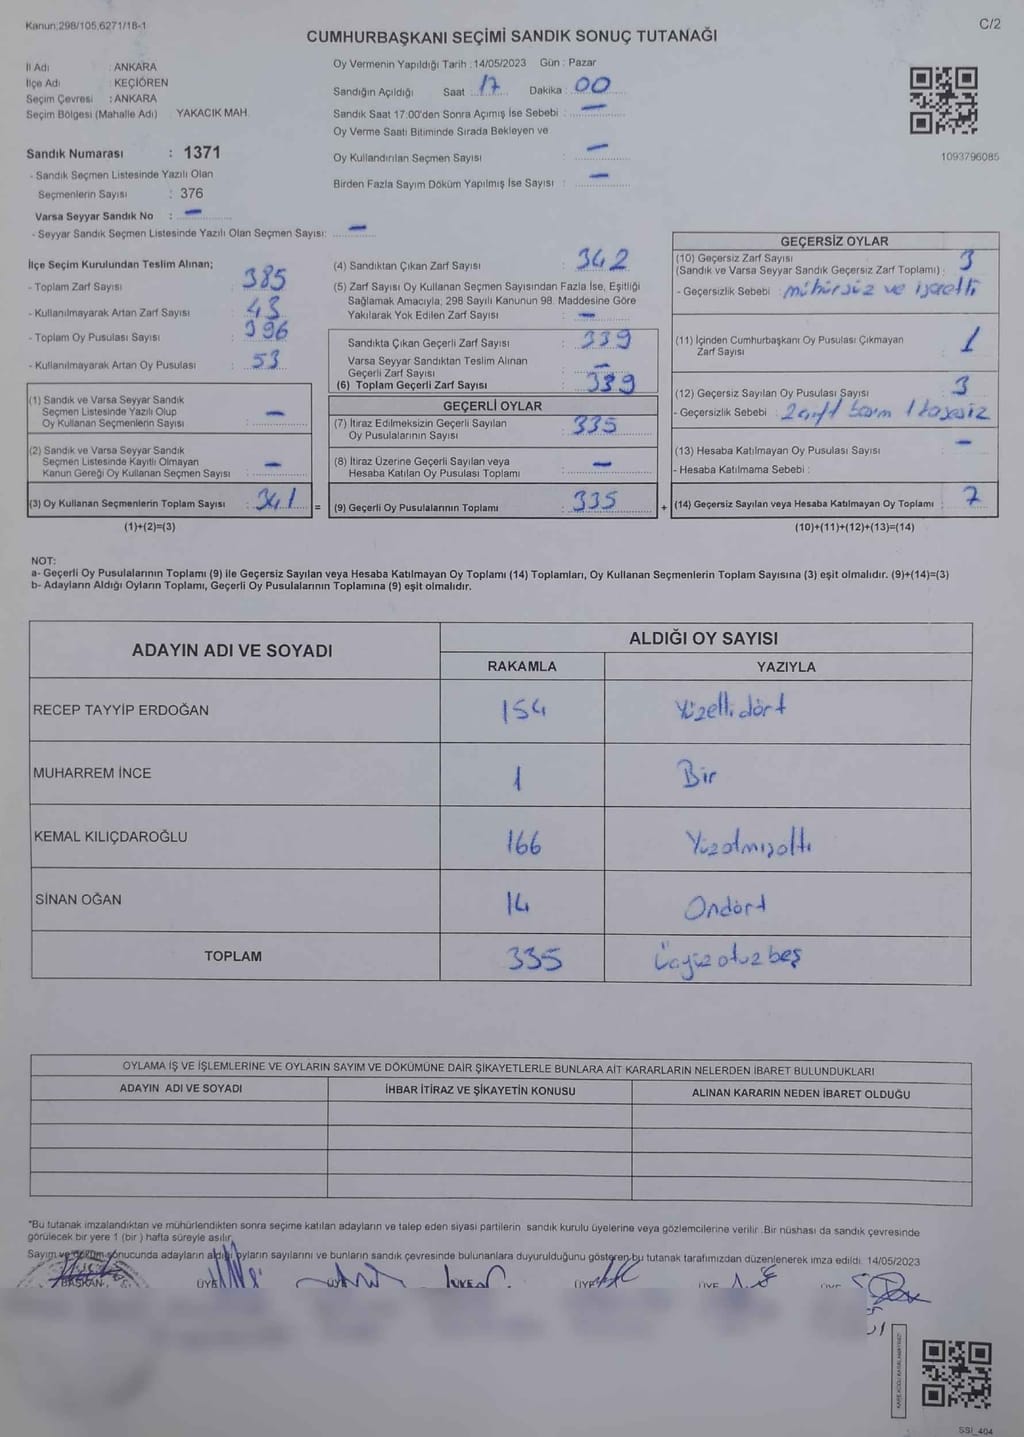 Kanun;298/105,6271/18-1
C/2
CUMHURBAŞKANI SEÇİMİ SANDIK SONUÇ TUTANAĞI
İl Adı : ANKARA
İlçe Adı : KEÇİÖREN
Seçim Çevresi : ANKARA
Seçim Bölgesi (Mahalle Adı) : YAKACIK MAH.
Sandık Numarası : 1371
- Sandık Seçmen Listesinde Yazılı Olan
Seçmenlerin Sayısı : 376
Varsa Seyyar Sandık No : —
- Seyyar Sandık Seçmen Listesinde Yazılı Olan Seçmen Sayısı: —
Oy Vermenin Yapıldığı Tarih : 14/05/2023 Gün : Pazar
Sandığın Açıldığı Saat : 17 Dakika : 00
Sandık Saat 17:00'den Sonra Açımış İse Sebebi : —
Oy Verme Saati Bitiminde Sırada Bekleyen ve
Oy Kullandırılan Seçmen Sayısı : —
Birden Fazla Sayım Döküm Yapılmış İse Sayısı : —
1093796085
İlçe Seçim Kurulundan Teslim Alınan;
- Toplam Zarf Sayısı : 385
- Kullanılmayarak Artan Zarf Sayısı : 43
- Toplam Oy Pusulası Sayısı : 396
- Kullanılmayarak Artan Oy Pusulası : 53
(1) Sandık ve Varsa Seyyar Sandık
Seçmen Listesinde Yazılı Olup
Oy Kullanan Seçmenlerin Sayısı : —
(2) Sandık ve Varsa Seyyar Sandık
Seçmen Listesinde Kayıtlı Olmayan
Kanun Gereği Oy Kullanan Seçmen Sayısı : —
(3) Oy Kullanan Seçmenlerin Toplam Sayısı : 341 =
(1)+(2)=(3)
(4) Sandıktan Çıkan Zarf Sayısı : 342
(5) Zarf Sayısı Oy Kullanan Seçmen Sayısından Fazla İse, Eşitliği
Sağlamak Amacıyla, 298 Sayılı Kanunun 98. Maddesine Göre
Yakılarak Yok Edilen Zarf Sayısı : —
Sandıkta Çıkan Geçerli Zarf Sayısı : 339
Varsa Seyyar Sandıktan Teslim Alınan
Geçerli Zarf Sayısı : —
(6) Toplam Geçerli Zarf Sayısı : 339
GEÇERLİ OYLAR
(7) İtiraz Edilmeksizin Geçerli Sayılan
Oy Pusulalarının Sayısı : 335
(8) İtiraz Üzerine Geçerli Sayılan veya
Hesaba Katılan Oy Pusulası Toplamı : —
(9) Geçerli Oy Pusulalarının Toplamı : 335 +
GEÇERSİZ OYLAR
(10) Geçersiz Zarf Sayısı : 3
(Sandık ve Varsa Seyyar Sandık Geçersiz Zarf Toplamı) :
- Geçersizlik Sebebi : mühürsüz ve işaretli
(11) İçinden Cumhurbaşkanı Oy Pusulası Çıkmayan
Zarf Sayısı : 1
(12) Geçersiz Sayılan Oy Pusulası Sayısı : 3
- Geçersizlik Sebebi :
(13) Hesaba Katılmayan Oy Pusulası Sayısı : —
- Hesaba Katılmama Sebebi :
(14) Geçersiz Sayılan veya Hesaba Katılmayan Oy Toplamı : 7
(10)+(11)+(12)+(13)=(14)
NOT:
a- Geçerli Oy Pusulalarının Toplamı (9) ile Geçersiz Sayılan veya Hesaba Katılmayan Oy Toplamı (14) Toplamları, Oy Kullanan Seçmenlerin Toplam Sayısına (3) eşit olmalıdır. (9)+(14)=(3)
b- Adayların Aldığı Oyların Toplamı, Geçerli Oy Pusulalarının Toplamına (9) eşit olmalıdır.
ADAYIN ADI VE SOYADI
ALDIĞI OY SAYISI
RAKAMLA YAZIYLA
RECEP TAYYİP ERDOĞAN 154 Yüzellidört
MUHARREM İNCE 1 Bir
KEMAL KILIÇDAROĞLU 166 Yüzatmışaltı
SİNAN OĞAN 14 Ondört
TOPLAM 335 Üçyüzotuzbeş
OYLAMA İŞ VE İŞLEMLERİNE VE OYLARIN SAYIM VE DÖKÜMÜNE DAİR ŞİKAYETLERLE BUNLARA AİT KARARLARIN NELERDEN İBARET BULUNDUKLARI
ADAYIN ADI VE SOYADI İHBAR İTİRAZ VE ŞİKAYETİN KONUSU ALINAN KARARIN NEDEN İBARET OLDUĞU
*Bu tutanak imzalandıktan ve mühürlendikten sonra seçime katılan adayların ve talep eden siyasi partilerin sandık kurulu üyelerine veya gözlemcilerine verilir .Bir nüshası da sandık çevresinde
görülecek bir yere 1 (bir ) hafta süreyle asılır.
Sayım ve döküm sonucunda adayların aldığı oyların sayılarını ve bunların sandık çevresinde bulunanlara duyurulduğunu gösteren bu tutanak tarafımızdan düzenlenerek imza edildi. 14/05/2023
BAŞKAN ÜYE ÜYE ÜYE ÜYE ÜYE ÜYE
SSİ_404